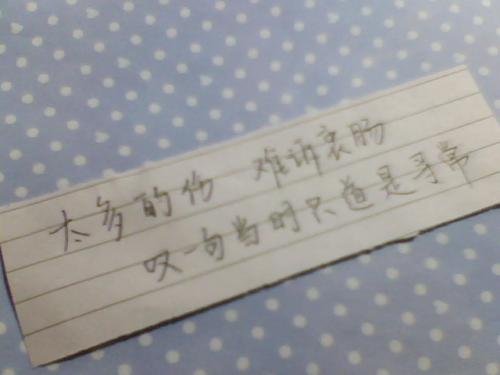 太多的伤 难诉衷肠
叹一句当时只道是寻常